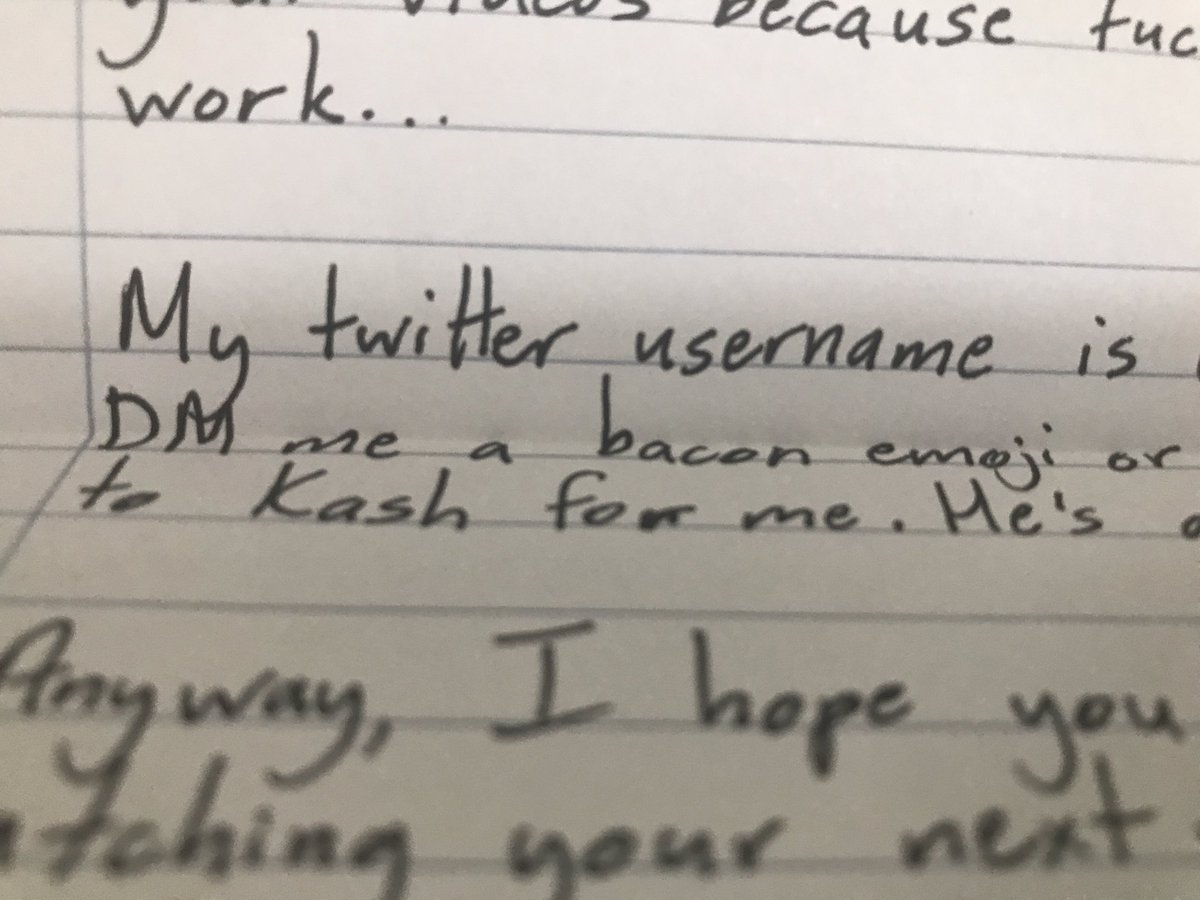 your videos because fuc
work...
My twitter username is
DM me a bacon emoji or
to Kash for me. He's
Anyway, I hope you
atching your next